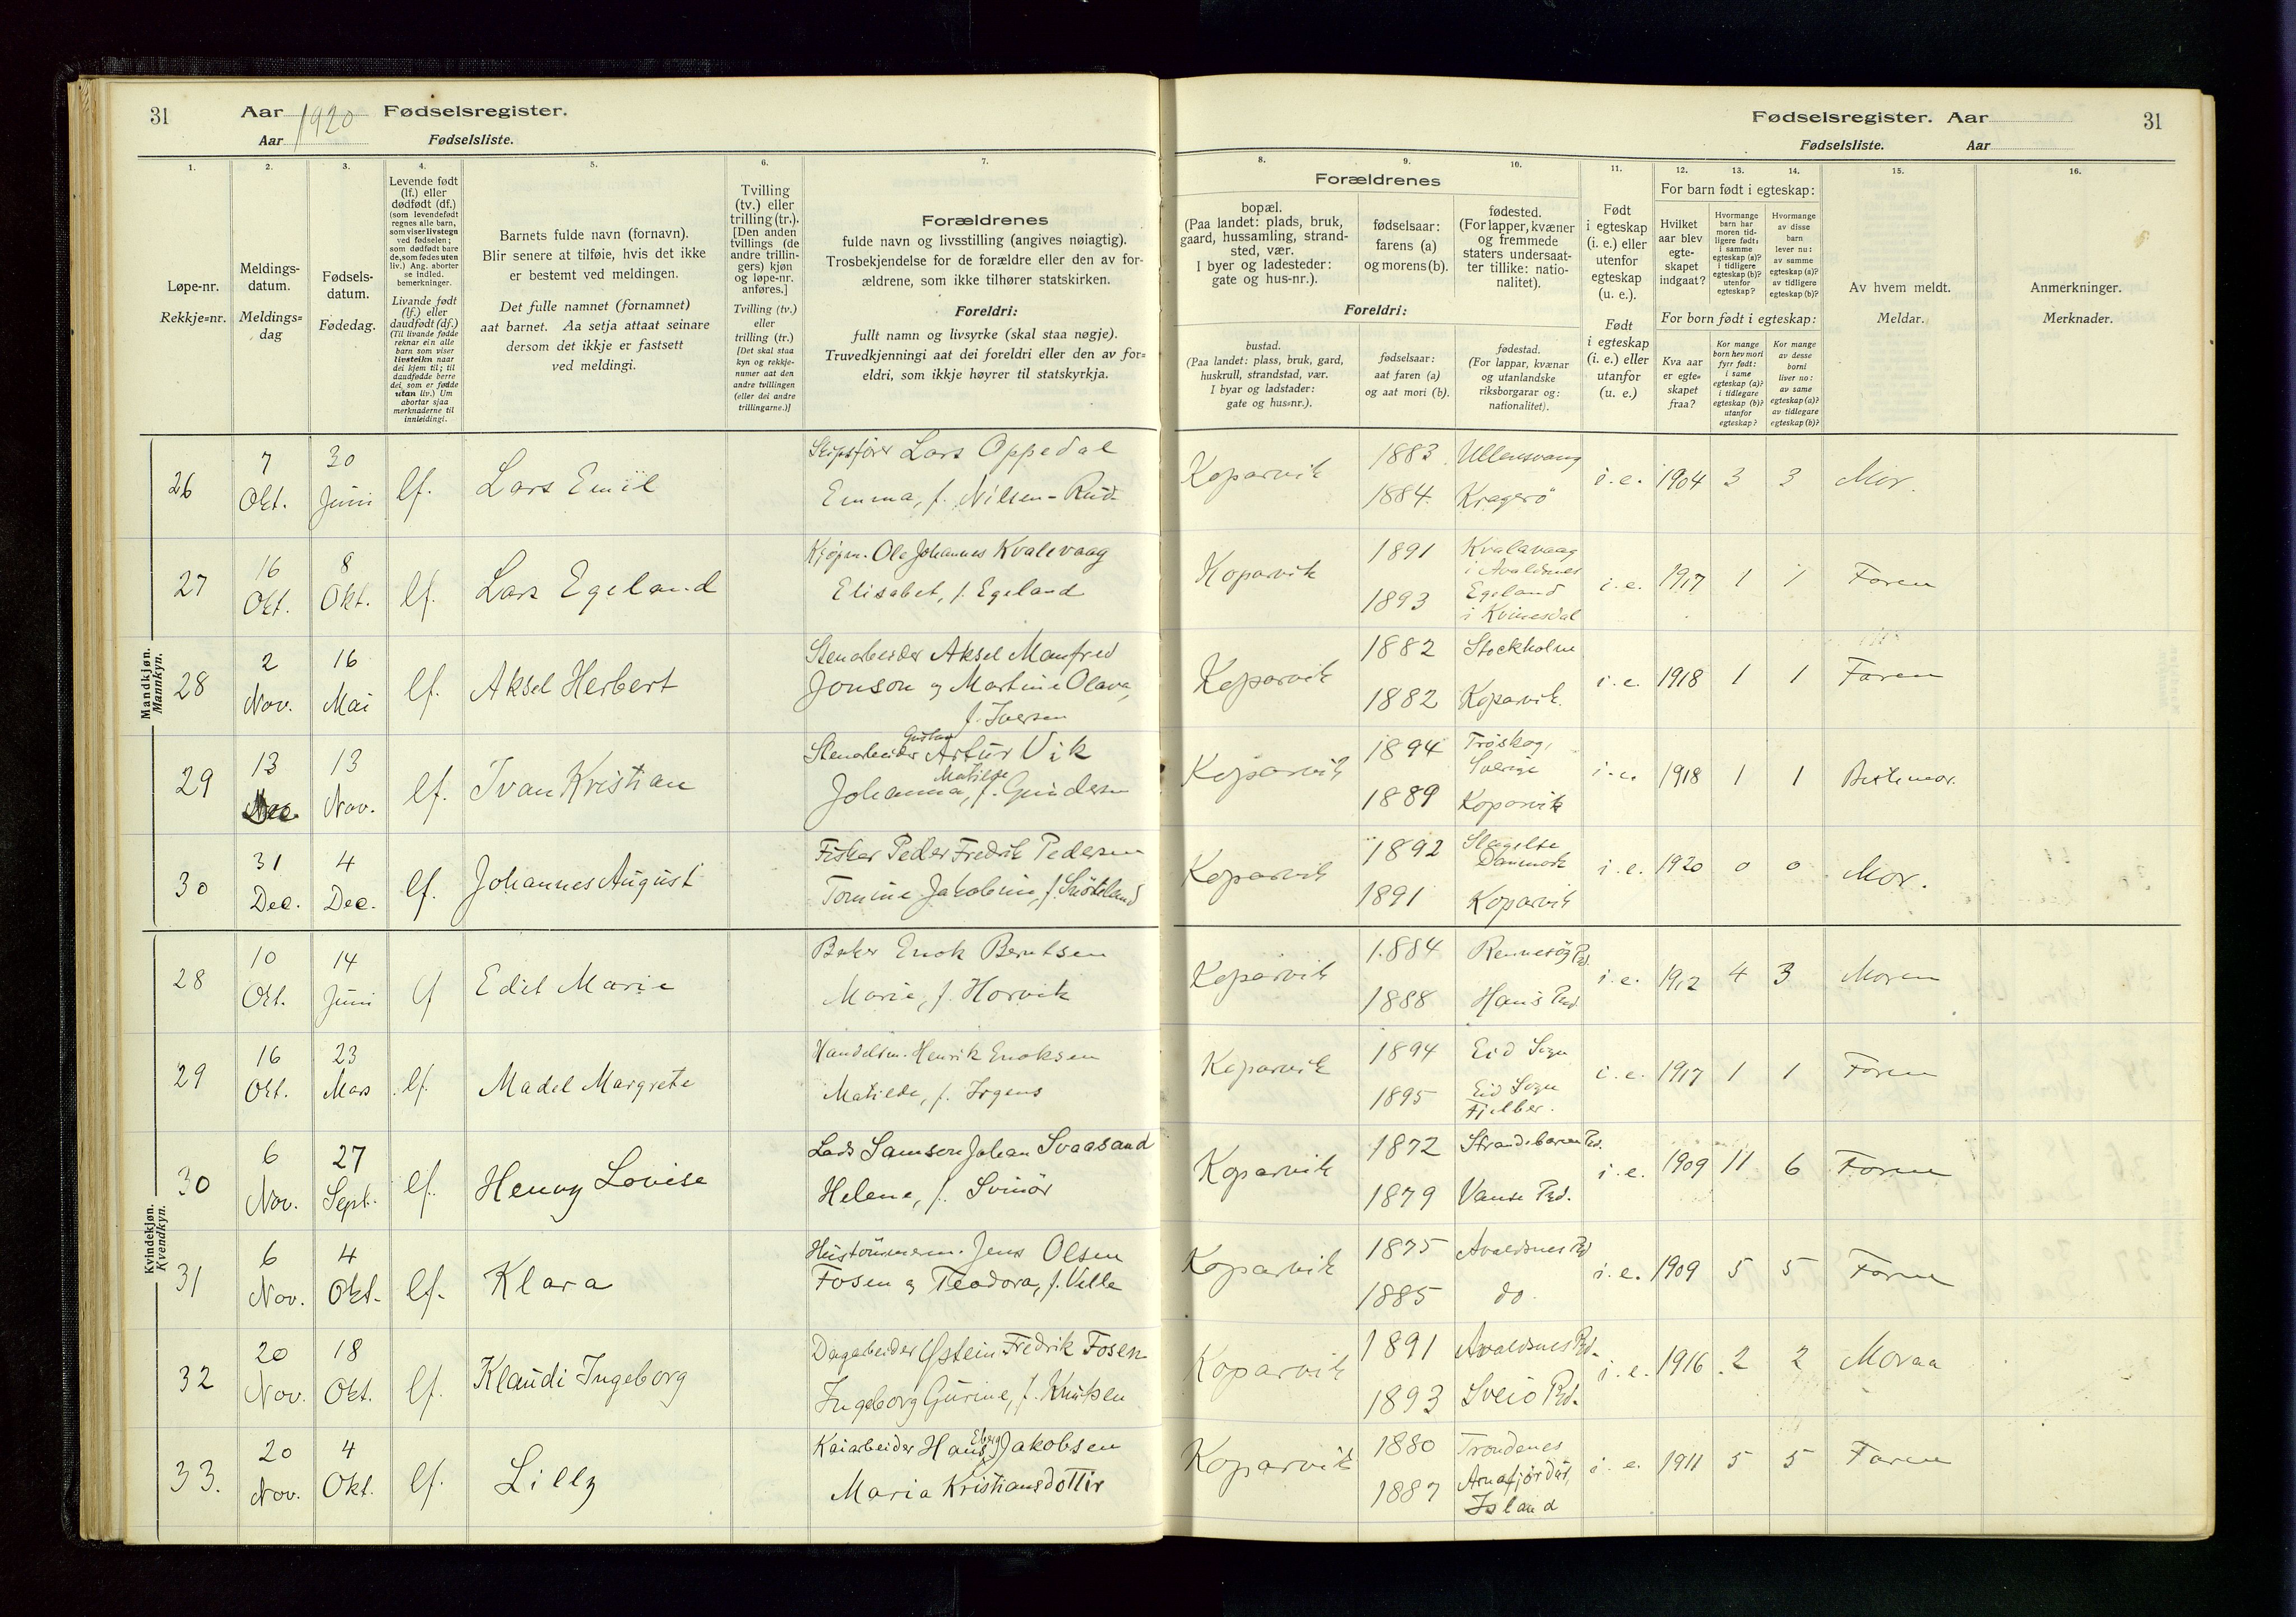 31
Aar 1920 Fødselsregister.
Aar Fødselsliste.
Fødselsregister. Aar
31
Fødselsliste. Aar
1.
2.
3.
4.
5.
6.
7.
8.
9.
10.
11.
12.
13.
14.
15.
16.
Løpe-nr.
Rekkje=nr.
Meldings-
datum.
Meldings=
dag
Fødsels-
datum.
Fødedag.
Levende født
(lf.) eller
dødfødt (df.)
(som levendefødt
regnes alle barn,
som viser livstegn
ved fødselen;
som dødfødt bare
de, som fødes uten
liv.) Ang. aborter
se indled.
bemerkninger.
Livande født
(lf.) eller
daudfødt (df.)
(Til livande fødde
reknar ein alle
barn som viser
livsteikn naar
dei kjem til; til
daudfødde berre
dei, som er fødde
utan liv.) Um
abortar sjaa
merknaderne til
innleidingi.
Barnets fulde navn (fornavn).
Blir senere at tilføie, hvis det ikke
er bestemt ved meldingen.
Det fulle namnet (fornamnet)
aat barnet. Aa setja attaat seinare
dersom det ikkje er fastsett
ved meldingi.
Tvilling
(tv.) eller
trilling (tr.).
[Den anden
tvillings (de
andre trillin-
gers) kjøn
og løpe-nr.
anføres.]
Tvilling (tv.)
eller
trilling (tr.)
[Det skal staa
kyn og rekkje-
numer aat den
andre tvillingen
(eller dei andre
trillingarne.)]
Forældrenes
fulde navn og livsstilling (angives nøiagtig).
Trosbekjendelse for de forældre eller den av for-
ældrene, som ikke tilhører statskirken.
Foreldri:
fullt namn og livsyrke (skal staa nøgje).
Truvedkjenningi aat dei foreldri eller den av for=
eldri, som ikkje høyrer til statskyrkja.
Forældrenes
bopæl.
(Paa landet: plads, bruk,
gaard, hussamling, strand-
sted, vær.
I byer og ladesteder:
gate og hus-nr.).
fødselsaar:
farens (a)
og morens (b).
fødested.
(For lapper, kvæner
og fremmede
staters undersaat-
ter tillike: natio-
nalitet).
Foreldri:
bustad.
(Paa landet: plass, bruk, gard,
huskrull, strandstad, vær.
I byar og ladstader:
gate og hus=nr.).
fødselsaar:
aat faren (a)
og aat mori (b).
fødestad.
(For lappar, kvænar
og utanlandske
riksborgarar og:
nationalitet).
Født
i egteskap
(i. e.) eller
utenfor
egteskap
(u. e.).
Født
i egteskap
(i. e.) eller
utanfor
(u. e.)
For barn født i egteskap:
Hvilket
aar blev
egte-
skapet
indgaat?
Hvormange
barn har
moren tid-
ligere født:
i samme
egteskap (a)?
i tidligere
egteskap (b)?
utenfor
egteskap?
Hvormange
av disse
barn
lever nu:
av samme
egteskap (a)?
av tidligere
egteskap (b)?
For born født i egteskap:
Kva aar
er egte=
skapet
fraa?
Kor mange
born hev mori
fyrr født:
i same
egteskap (a)?
i tidlegare
egteskap (b)?
utanfor
egteskap?
Kor mange
av desse
borni
liver no:
av same
egteskap (a)?
av tidlegare
egteskap (b)?
Av hvem meldt.
Meldar.
Anmerkninger.
Merknader.
Mandkjøn.
Mannkyn.
26 7 Okt. 30 Juni lf. Lars Emil Skipsfører Lars Oppedal
Emma, f. Nilsen-Rud
Koparvik 1883 Ullensvang 1884 Kragerö i. e. 1904 3 3 Mor.
27 16 Okt. 8 Okt. lf. Lars Egeland Kjøpm. Ole Johannes Kvalevaag
Elisabet, f. Egeland
Koparvik 1891 Kvalavaag i Avaldsnes 1893 Egeland i Kvinesdal i. e. 1917 1 1 Faren
28 2 Nov. 16 Mai lf. Aksel Herbert Stenarbeider Aksel Manfred
Jonson og Martine Olava,
f. Iversen
Koparvik 1882 Stockholm 1882 Koparvik. i. e. 1918 1 1 Faren
29 13 Dec. 13 Nov. lf. Ivan Kristian Stenarbeider Gustav Artur Vik
Johanna Matilde, f. Gundersen
Koparvik 1894 Tröskog, Sverige 1889 Koparvik i. e. 1918 1 1 Bestemor.
30 31 Dec. 4 Dec. lf. Johannes August Fisker Peder Fredrik Pedersen
Tomine Jakobine, f.
Koparvik 1892 Slagelse Danmark 1891 Koparvik i. e. 1920 0 0 Mor.
Kvindekjøn.
Kvendkyn.
28 10 Okt. 14 Juni lf Edit Marie Baker Enok Berntsen
Marie, f. Horvik
Koparvik 1884 Rennesöy Pd. 1888 Pd. i. e. 1912 4 3 Moren
29 16 Okt. 23 Mars lf. Madel Margrete Handelsm. Henrik Enoksen
Matilde, f. Irgens
Koparvik 1894 Eid Sogn 1895 Eid Sogn Fjelber. i. e. 1917 1 1 Faren
30 6 Nov. 27 Sept. lf. Henny Lovise Lods Samson Johan Svaasand
Helene, f. Svinör
Koparvik 1872 Strandebarm Pd. 1879 Vanse Pd. i. e. 1909 11 6 Faren
31 6 Nov. 4 Okt. lf. Klara Hustömmerm. Jens Olsen
Fosen og Teodora, f. Velle
Koparvik 1875 Avaldsnes Pd 1885 do. i. e. 1909 5 5 Faren
32 20 Nov. 18 Okt. lf. Klaudi Ingeborg Dagarbeider Østein Fredrik Fosen
Ingeborg Gurine, f. Knutsen
Koparvik 1891 Avaldsnes Pd. 1893 Sveio Pd. i. e. 1916 2 2 Moraa
33. 20 Nov. 4 Okt. lf. Lilly Kaiarbeider Hans Eberg Jakobsen
Maria Kristiansdottir
Koparvik 1880 Trondenes 1887 Arnafjördur, Island i. e. 1911 5 5 Faren